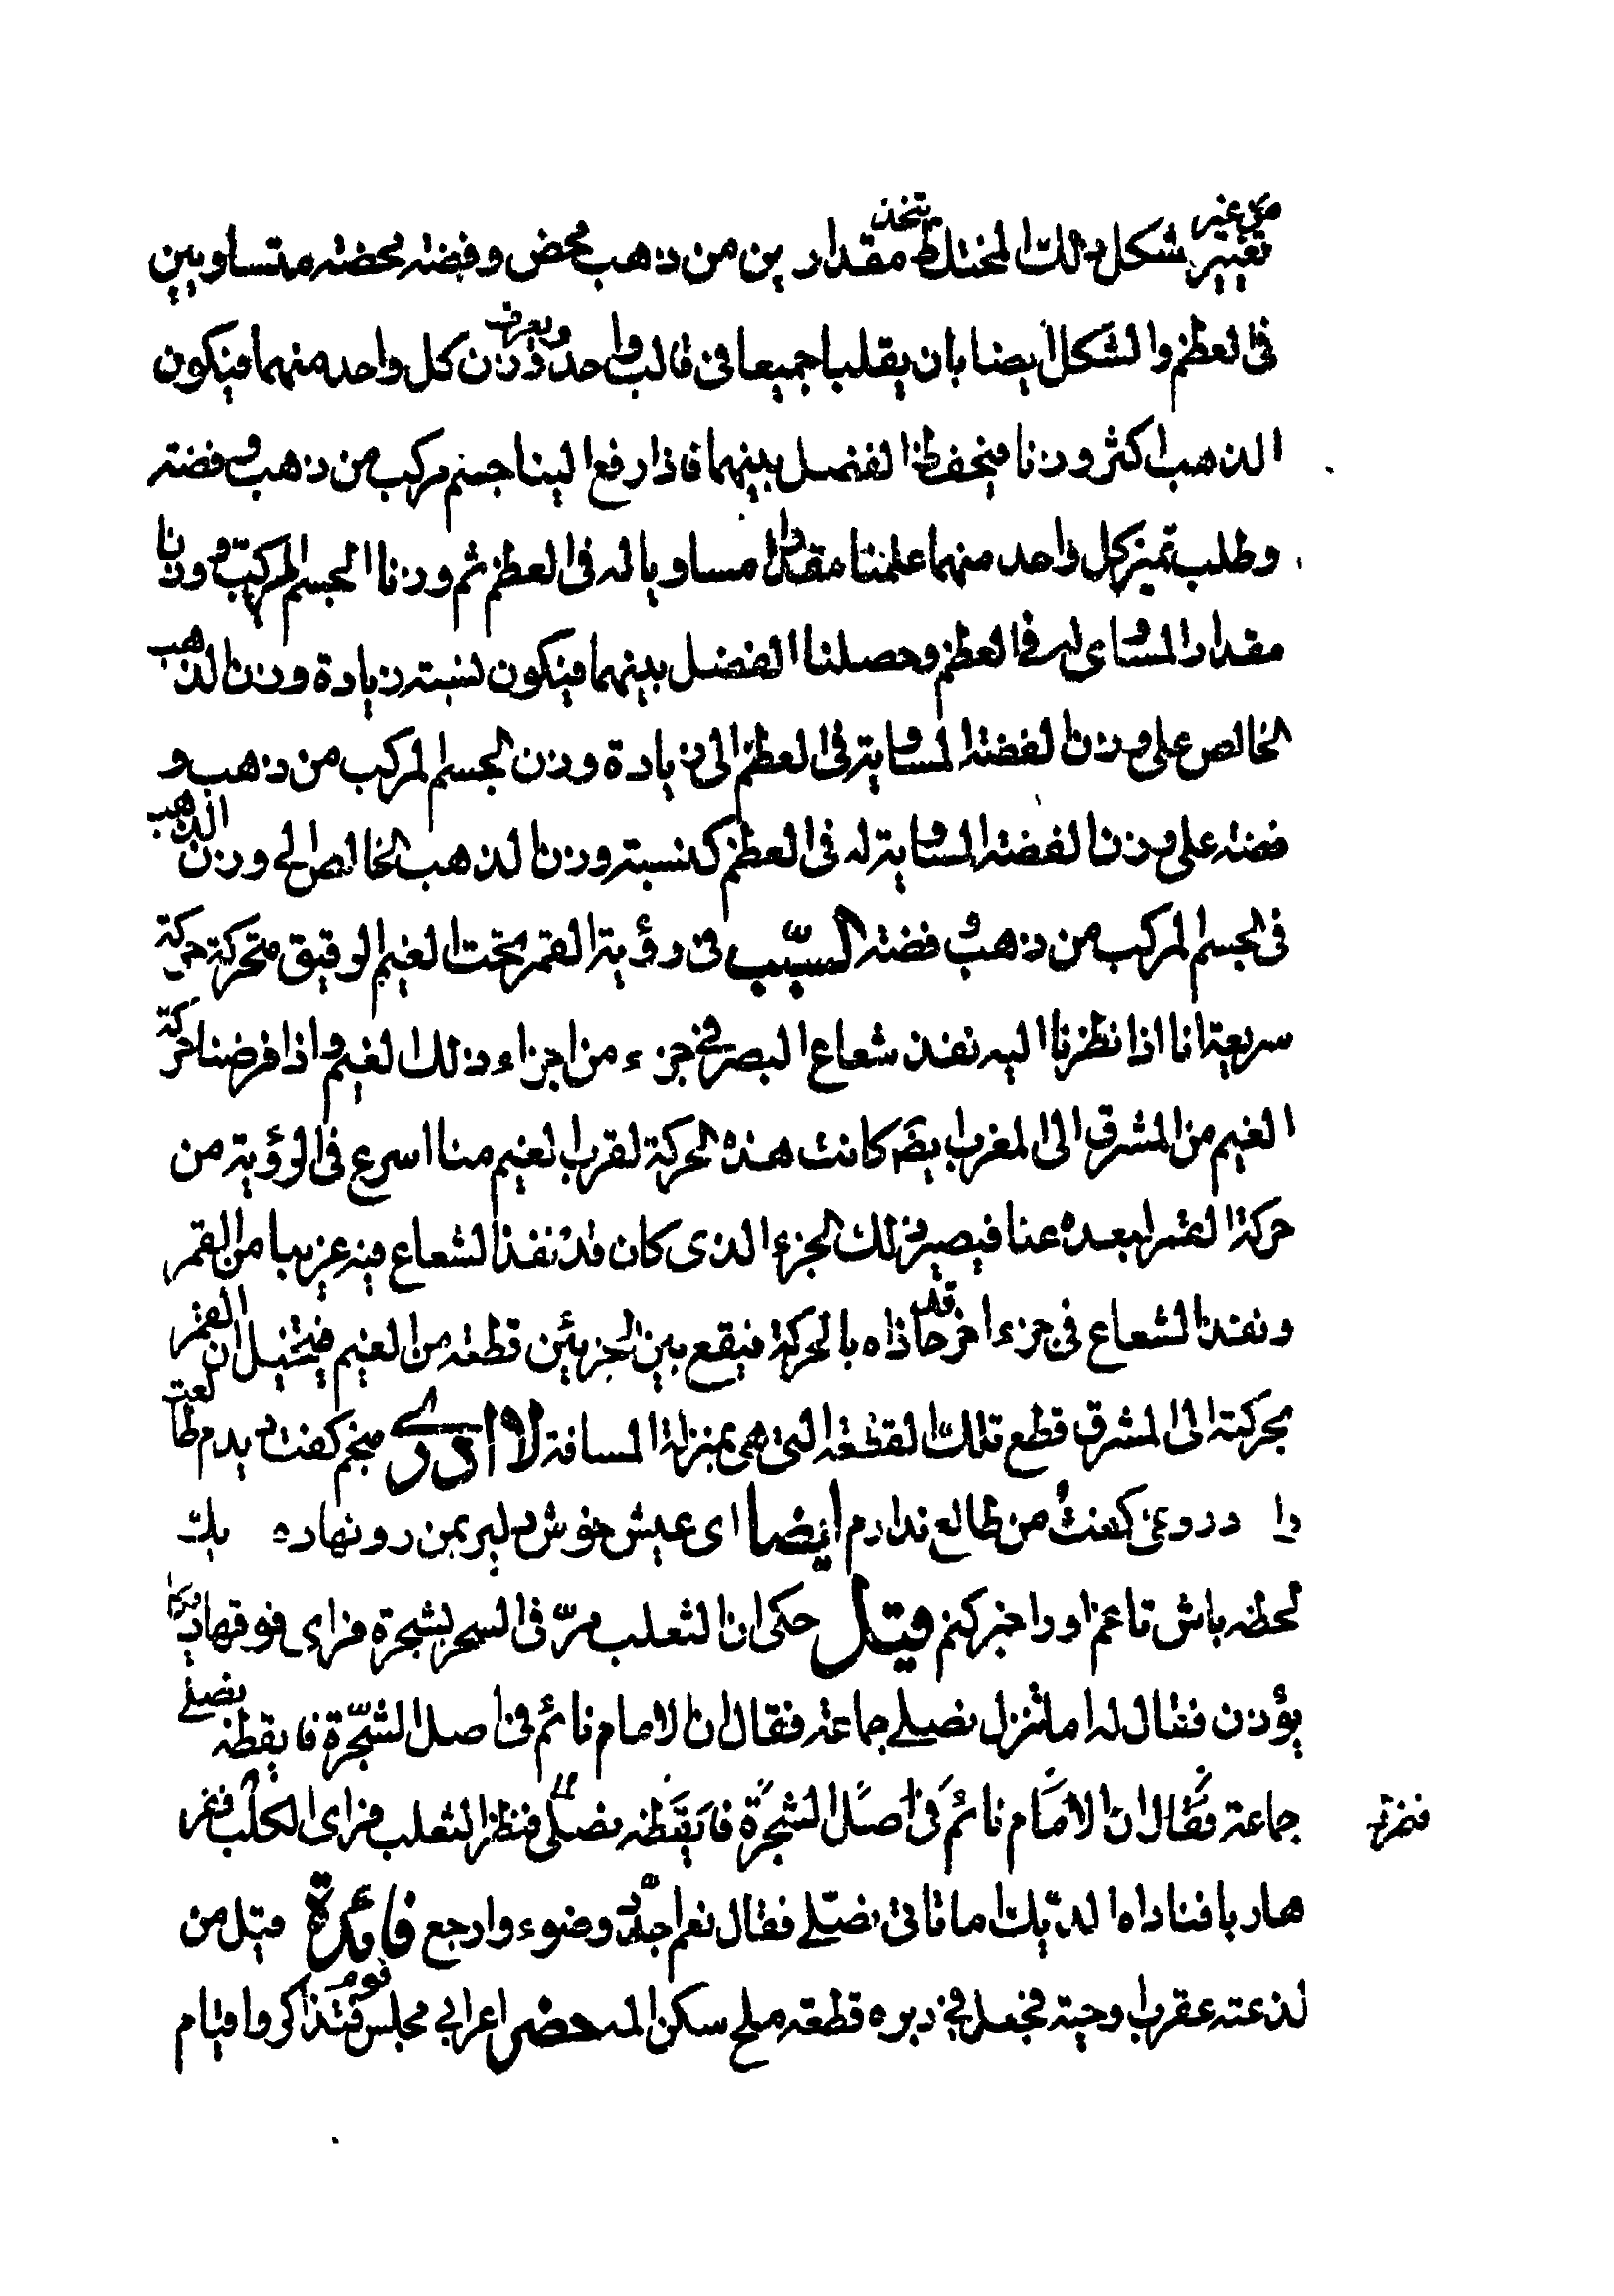 من غير
تغيير شكل ذلك المختلط نتخذ مقدارين من ذهب محض وفضة محضة متساويين
فى العظم والشكل ايضا بان يقلبا جميعا فى قالب واحد ويعرف وزن كل واحد منهما فيكون
الذهب اكثر وزنا فيحفظ الفضل بينهما فاذا رفع الينا جسم مركب من ذهب وفضة
وطلب تميز كل واحد منهما علمنا مقدارا مساويا له فى العظم ثم وزنا الجسم المركب ووزن
مقدار المساوى له فى العظم وحصلنا الفضل بينهما فيكون نسبة زيادة وزن الذهب
الخالص على وزن الفضة المساوية فى العظم الى زيادة وزن الجسم المركب من ذهب و
فضة على وزن الفضة المساوية له فى العظم كنسبة وزن الذهب الخالص الى وزن الذهب
فى الجسم المركب من ذهب وفضة السبب فى رؤية القمر تحت الغيم الرقيق متحركة حركة
سريعة انا اذا نظرنا اليه نفذ شعاع البصر فى جزء من اجزاء ذلك الغيم واذا فرضنا حركة
الغيم من المشرق الى المغرب ايضا كانت هذه الحركة لقرب الغيم منا اسرع فى الرؤية من
حركة القمر لبعده عنا فيصير ذلك الجزء الذى كان قد نفذ الشعاع فيه غريبا من القمر
ونفذ الشعاع فى جزء اخر قد حاذاه بالحركة فيقع بين الجزئين قطعة من الغيم فيتخيل ان القمر
بحركته الى المشرق قطع تلك القطعة التى هى بمنزلة المسافة لا ادرى منجم كفت ديدم طالعت
را در وى غم كفت من طالع ندارم ايضا اى عيش خوش دلبر بمن رو نهاده يك
لحظه باش تا غم او را خبر كنم قيل حكى ان الثعلب مر فى السحر بشجرة فراى فوقها ديكا
يؤذن فقال له اما تنزل نصلى جماعة فقال ان الامام نائم فى اصل الشجرة فايقظه نصلى
جماعة فقال ان الامام نائم فى اصل الشجرة فايقظه نصلى فنظر الثعلب فراى الكلب ففر
هاربا فناداه الديك اما تاتى نصلى فقال نعم اجدد وضوء وارجع فائدة قيل من
لذعته عقرب او حية فجعل فى دبره قطعة ملح سكن الم حضر اعرابى مجلس قوم فتذاكروا قيام